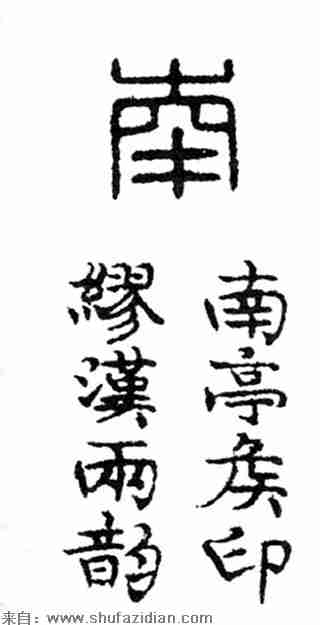 南
南亭矦印
繆漢兩韵
来自：www.shufazidian.com